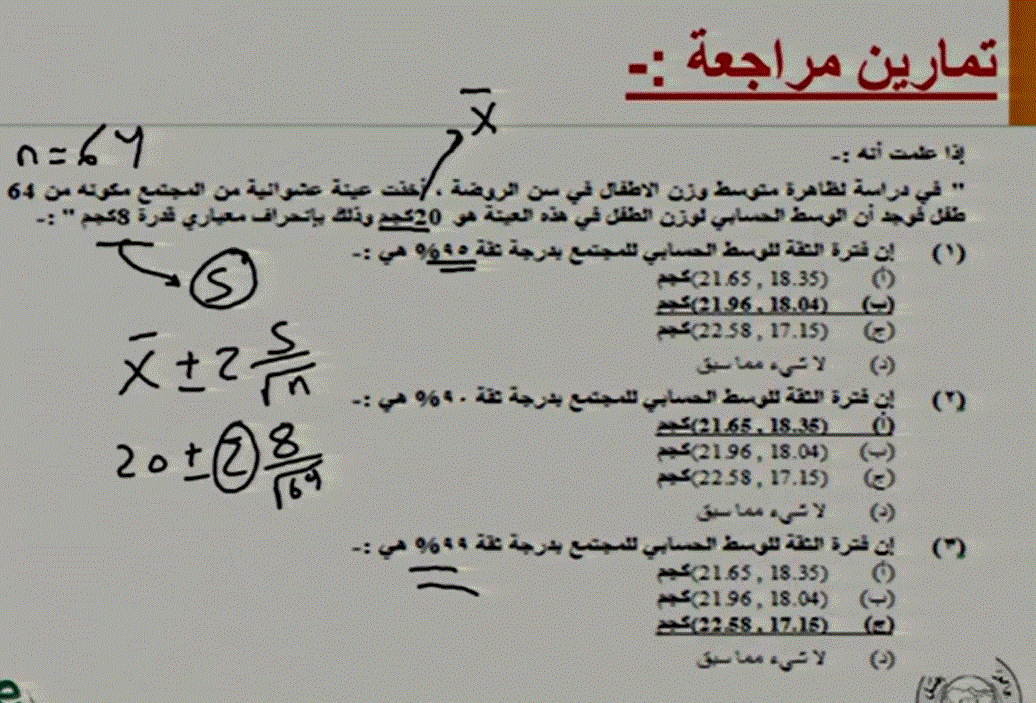 تمارين مراجعة :-
X̄
n = 64
إذا علمت أنه :-
" في دراسة لظاهرة متوسط وزن الاطفال في سن الروضة ، أخذت عينة عشوائية من المجتمع مكونه من 64
طفل فوجد أن الوسط الحسابي لوزن الطفل في هذه العينة هو 20كجم وذلك بإنحراف معياري قدرة 8كجم " :-
(١) إن فترة الثقة للوسط الحسابي للمجتمع بدرجة ثقة ٩٥% هي :-
(أ) (21.65 , 18.35)كجم
(ب) (21.96 , 18.04)كجم
(ج) (22.58 , 17.15)كجم
(د) لا شيء مما سبق
S
X̄ ± Z S/√n
20 ± Z 8/√64
(٢) إن فترة الثقة للوسط الحسابي للمجتمع بدرجة ثقة ٩٠% هي :-
(أ) (21.65 , 18.35)كجم
(ب) (21.96 , 18.04)كجم
(ج) (22.58 , 17.15)كجم
(د) لا شيء مما سبق
(٣) إن فترة الثقة للوسط الحسابي للمجتمع بدرجة ثقة ٩٩% هي :-
(أ) (21.65 , 18.35)كجم
(ب) (21.96 , 18.04)كجم
(ج) (22.58 , 17.15)كجم
(د) لا شيء مما سبق